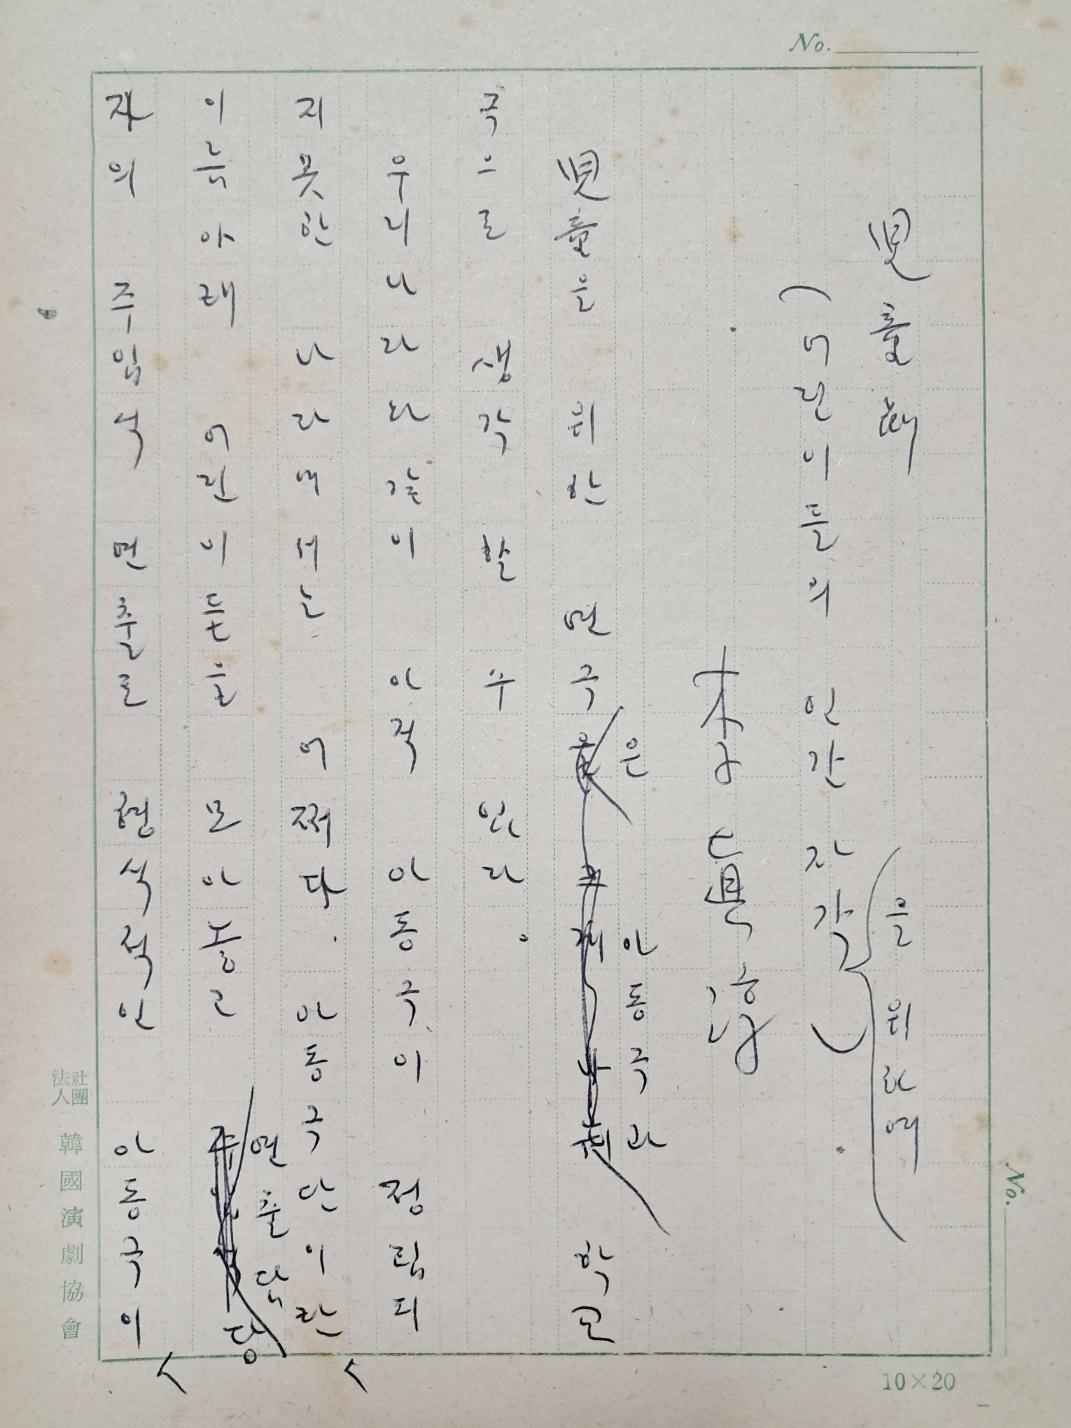 No.
兒童劇
(어린이들의 인간 자각)
을 위하여
李
兒童은 위한 연극은 아동극과 학교
극으로 생각 할 수 있다.
우리나라와 같이 아직 아동극이 정립되
지 못한 나라에서는 어쩌다. 아동극단이란
이름아래 어린이들을 모아놓고 연출담당
자의 주입식 연출로 형식적인 아동극이
社團法人 韓國演劇協會
No.
10×20